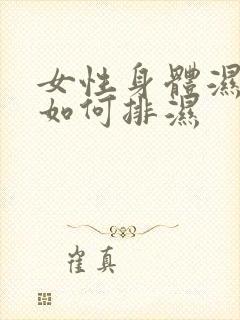 女性身體濕
如何排濕
崔真